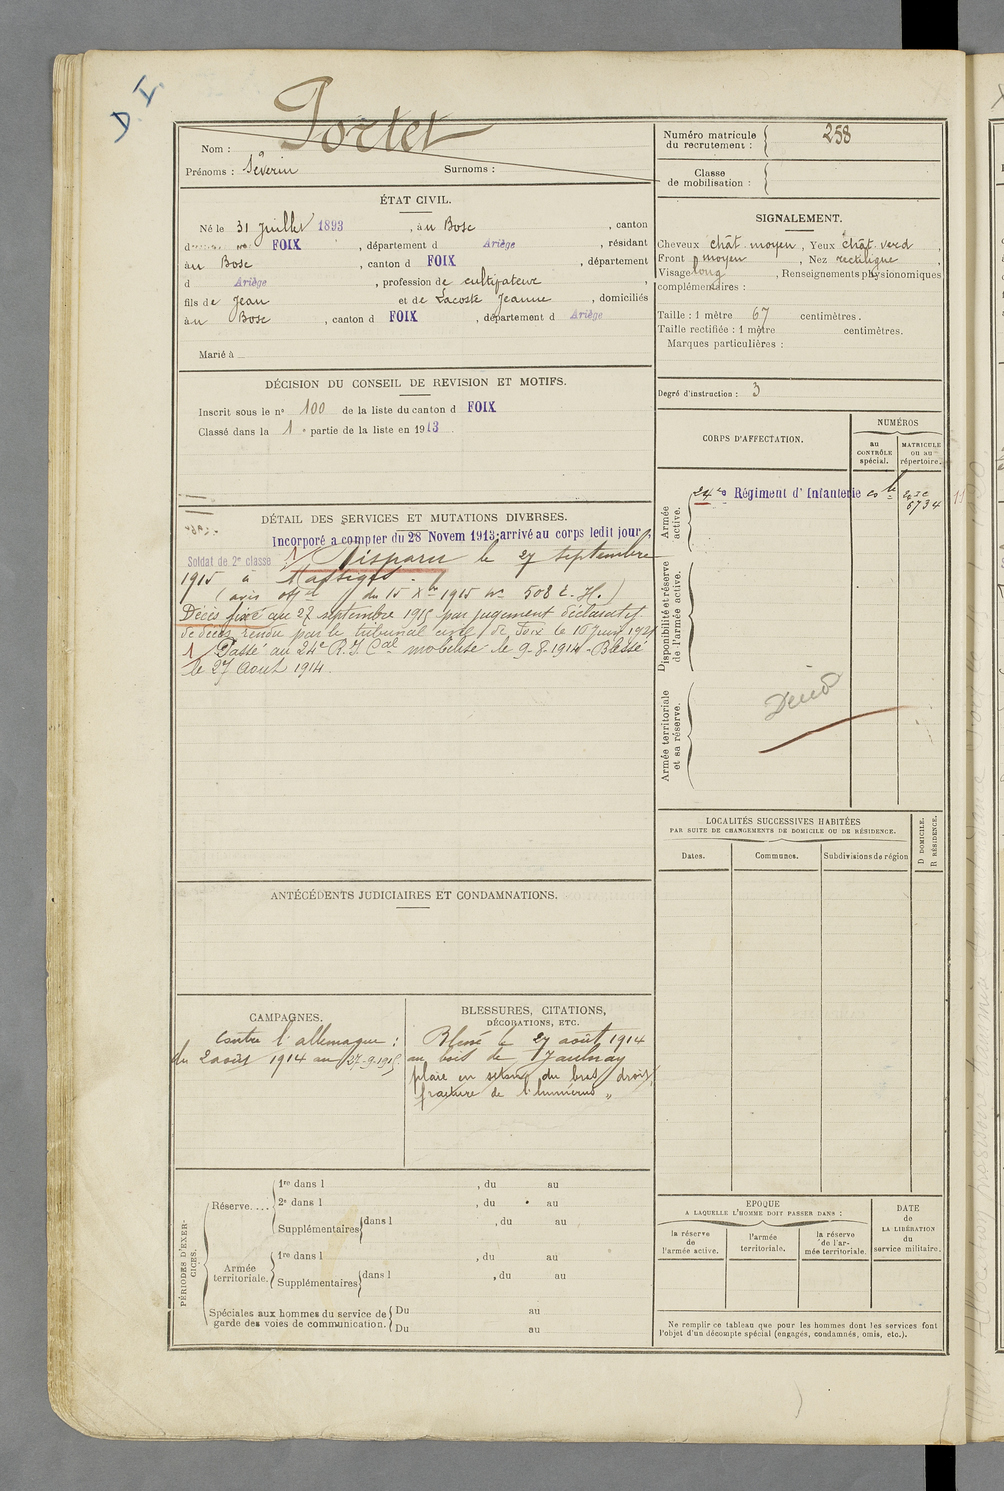 D. I.
Portet
Nom :
Prénoms : Séverin Surnoms :
Numéro matricule
du recrutement : 258
Classe
de mobilisation :
ÉTAT CIVIL.
Né le 31 Juillet 1893, à au Bosc, canton
d FOIX, département d Ariège, résidant
à au Bosc, canton d FOIX, département
d Ariège, profession de cultivateur
fils de Jean et de Lacoste Jeanne, domiciliés
à au Bosc, canton d FOIX, département d Ariège
Marié à
SIGNALEMENT.
Cheveux chât. moyen, Yeux chât. verd,
Front moyen, Nez rectiligne,
Visage long, Renseignements physionomiques
complémentaires :
Taille : 1 mètre 67 centimètres.
Taille rectifiée : 1 mètre centimètres.
Marques particulières :
Degré d'instruction : 3
DÉCISION DU CONSEIL DE REVISION ET MOTIFS.
Inscrit sous le n° 100 de la liste du canton d FOIX
Classé dans la 1e partie de la liste en 1913
CORPS D'AFFECTATION.
NUMÉROS
au
CONTRÔLE
spécial.
MATRICULE
ou au
répertoire.
Armée
active.
24e Régiment d'Infanterie
6734
Disponibilité et réserve
de l'armée active.
Armée territoriale
et sa réserve.
Décédé
DÉTAIL DES SERVICES ET MUTATIONS DIVERSES.
Incorporé a compter du 28 Novem 1913 arrivé au corps ledit jour
Soldat de 2e classe 1/ Disparu le 27 septembre
1915 à Massiges.
(avis offel du 15 Xbre 1915 no 508 L. H.)
Décès fixé au 27 septembre 1915 par jugement déclaratif
de décès rendu par le tribunal civil de Foix le 10 juin 1921
1/ Passé au 24e R.I. Cal mobilisé le 9-8-1914 - Blessé
le 27 Aout 1914.
ANTÉCÉDENTS JUDICIAIRES ET CONDAMNATIONS.
LOCALITÉS SUCCESSIVES HABITÉES
PAR SUITE DE CHANGEMENTS DE DOMICILE OU DE RÉSIDENCE.
D DOMICILE.
R RÉSIDENCE.
Dates. Communes. Subdivisions de région
CAMPAGNES.
Contre l'allemagne :
du 2 août 1914 au 27-9-1915
BLESSURES, CITATIONS,
DÉCORATIONS, ETC.
Blessé le 27 août 1914
au bois de Jaulnay
plaie en séton du bras droit
fracture de l'humérus "
PÉRIODES D'EXER-
CICES.
Réserve....
1re dans l , du au
2e dans l , du au
Supplémentaires dans l , du au
Armée
territoriale.
1re dans l , du au
Supplémentaires dans l , du au
Spéciales aux hommes du service de
garde des voies de communication.
Du au
Du au
EPOQUE
A LAQUELLE L'HOMME DOIT PASSER DANS :
la réserve
de
l'armée active.
l'armée
territoriale.
la réserve
de l'ar-
mée territoriale.
DATE
de
LA LIBÉRATION
du
service militaire.
Ne remplir ce tableau que pour les hommes dont les services font
l'objet d'un décompte spécial (engagés, condamnés, omis, etc.).